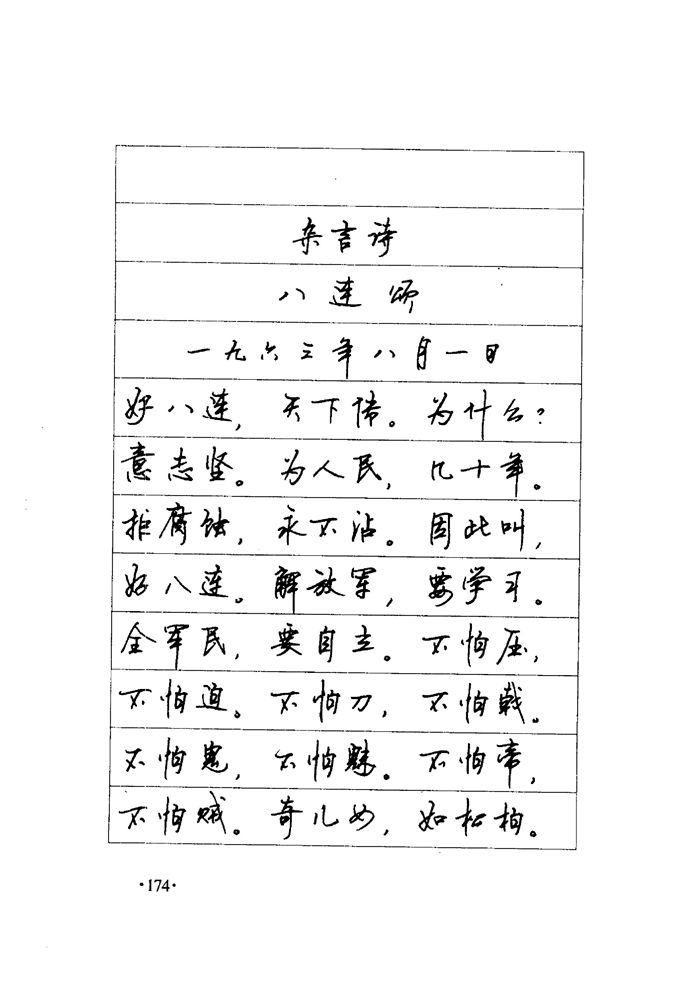 杂言诗
八连颂
一九六三年八月一日
好八连，天下传。为什么？
意志坚。为人民，几十年。
拒腐蚀，永不沾。因此叫，
好八连。解放军，要学习。
全军民，要自立。不怕压，
不怕迫。不怕刀，不怕戟。
不怕鬼，不怕魅。不怕帝，
不怕贼。奇儿女，如松柏。
·174·